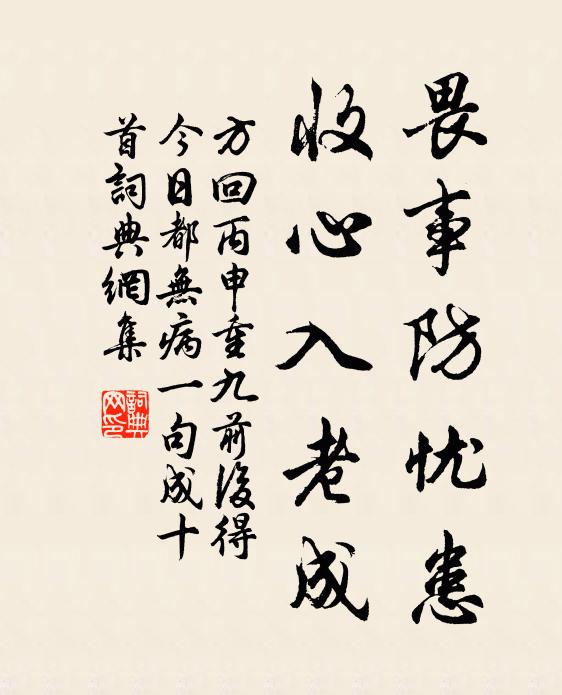 畏事防忧患
收心入老成
方回丙申重九前後得
今日都無病一句成十
首詞典網集
詞典
网印